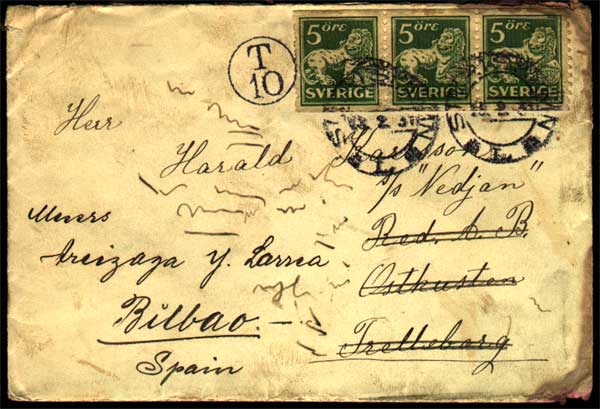 5 ÖRE 5 ÖRE 5 ÖRE
SVERIGE SVERIGE SVERIGE
T
10
Herr
Harald Karlsson
s/s "Vedjan"
Red. A. B.
Ostkusten
Trelleborg
Messrs
Areizaga y. Larrea
Bilbao.
Spain